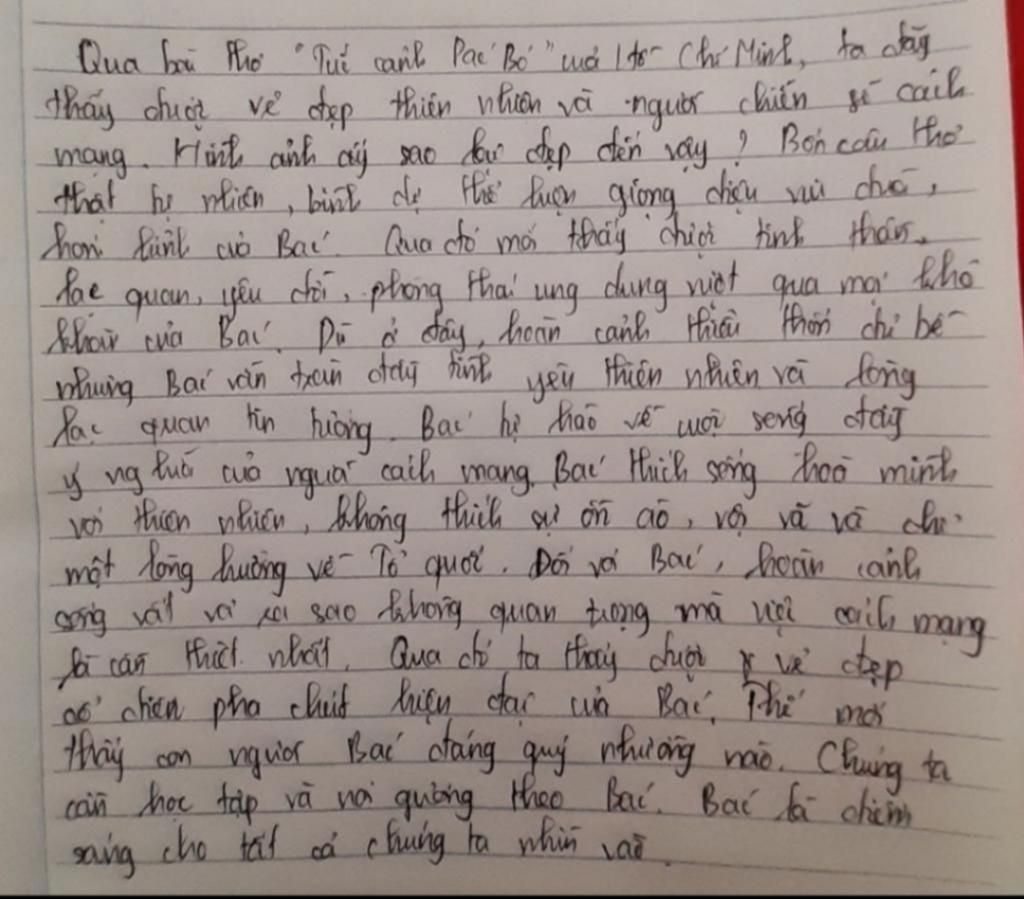 Qua bài thơ "Tức cảnh Pác Bó" của Hồ Chí Minh, ta đây
thấy được vẻ đẹp thiên nhiên và người chiến sĩ cách
mạng. Hình ảnh ấy sao lại đẹp đến vậy? Bốn câu thơ
thật tự nhiên, bình dị thể hiện giọng điệu vui đùa,
hóm hỉnh của Bác. Qua đó mới thấy được tinh thần
lạc quan, yêu đời, phong thái ung dung vượt qua mọi khó
khăn của Bác. Dù ở đây, hoàn cảnh thiếu thốn
nhưng Bác vẫn tràn đầy tình yêu thiên nhiên và lòng
lạc quan tin tưởng. Bác tự hào về cuộc sống đầy
ý nghĩa của người cách mạng. Bác thích sống hoà mình
với thiên nhiên, không thích sự ồn ào, vội vã và chỉ
một lòng hướng về Tổ quốc. Đối với Bác, hoàn cảnh
sống vất vả ra sao không quan trọng mà việc cách mạng
là cần thiết nhất. Qua đó ta thấy được vẻ đẹp
cổ điển pha chút hiện đại của Bác. Thế mới
thấy con người Bác đáng quý nhường nào. Chúng ta
cần học tập và noi gương theo Bác. Bác là
sáng cho tất cả chúng ta nhìn vào.